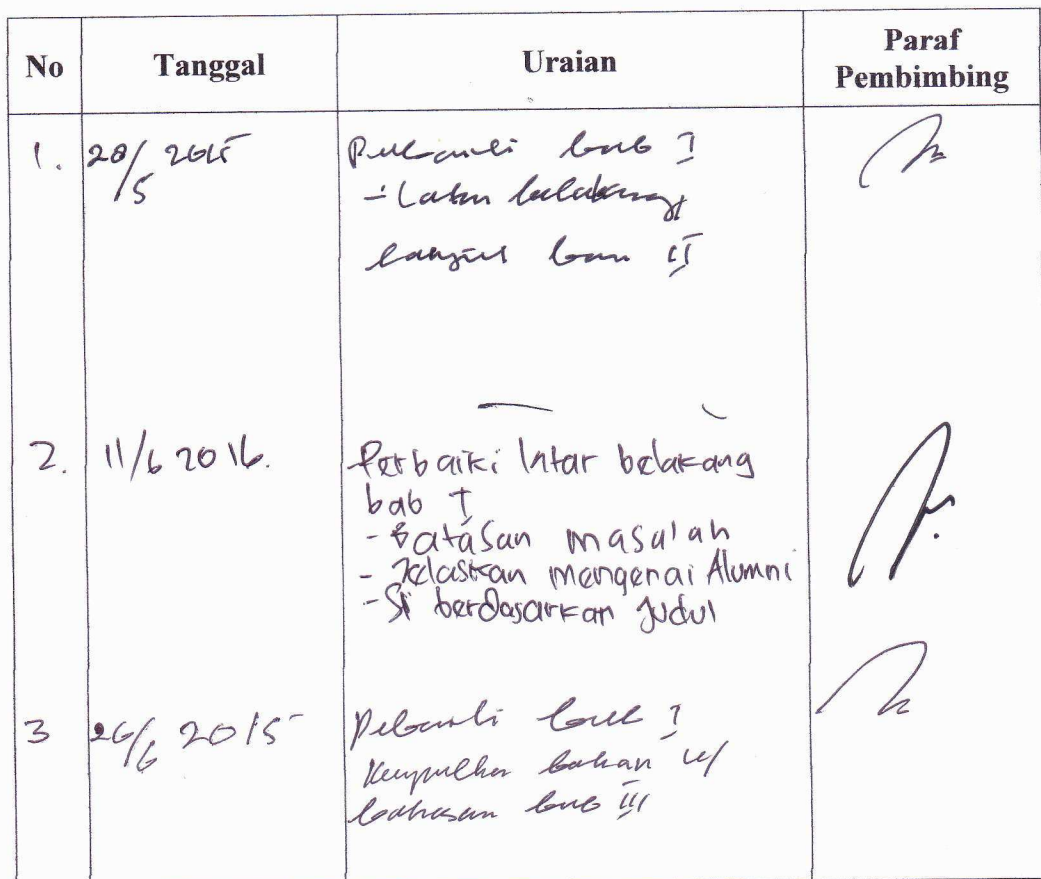 No Tanggal Uraian Paraf Pembimbing
1. 20/5 2015 Perbaiki bab I
- Latar belakang
lanjut bab II
2. 11/6 2016. Perbaiki latar belakang
bab I
- Batasan masalah
- Jelaskan mengenai Alumni
- SI berdasarkan Judul
3 26/6 2015 Perbaiki bab I
Kumpulkan bahan u/
bahasan bab III